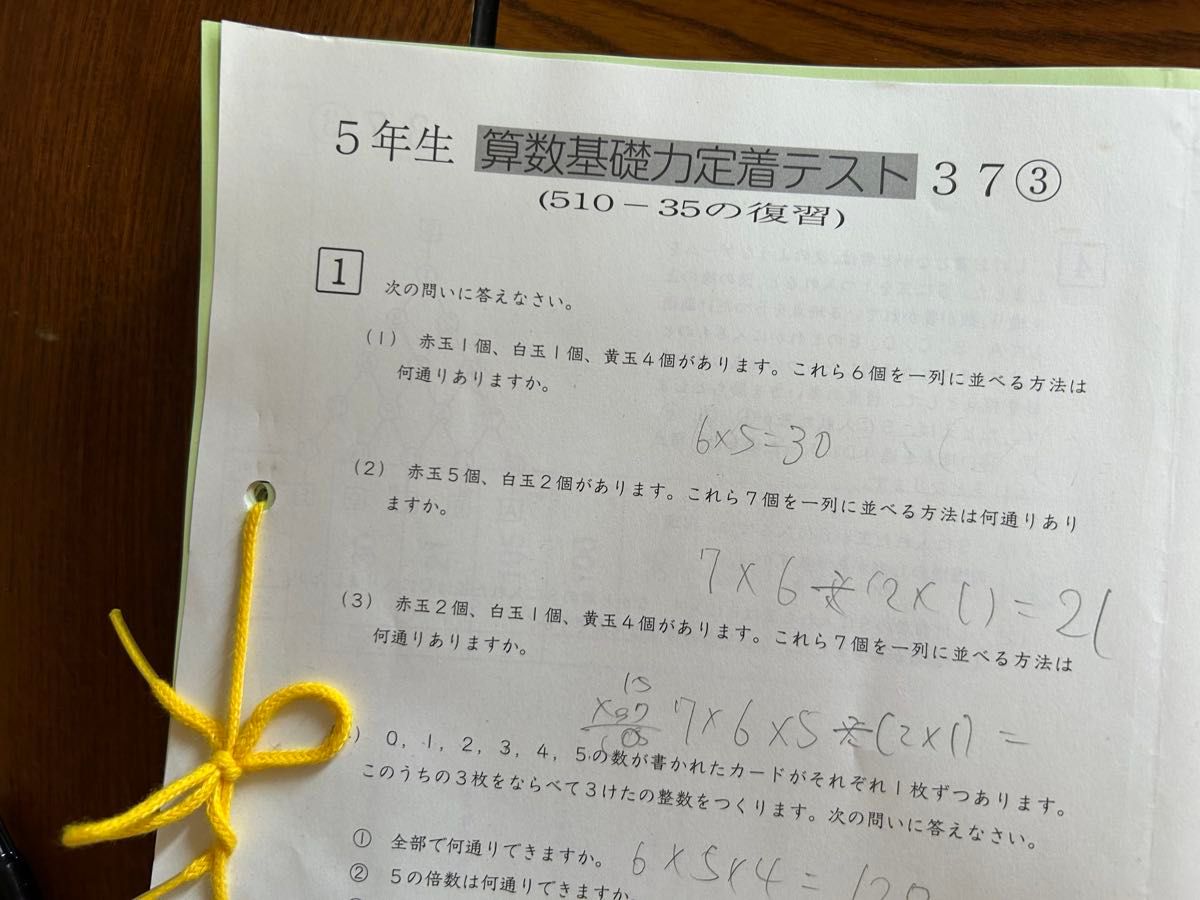 5年生 算数基礎力定着テスト 37③
(510-35の復習)
1 次の問いに答えなさい。
(1) 赤玉1個、白玉1個、黄玉4個があります。これら6個を一列に並べる方法は
何通りありますか。
6×5=30
(2) 赤玉5個、白玉2個があります。これら7個を一列に並べる方法は何通りあり
ますか。
7×6÷(2×1)=21
(3) 赤玉2個、白玉1個、黄玉4個があります。これら7個を一列に並べる方法は
何通りありますか。
15
105
7×6×5÷(2×1)=
) 0, 1, 2, 3, 4, 5の数が書かれたカードがそれぞれ1枚ずつあります。
このうちの3枚をならべて3けたの整数をつくります。次の問いに答えなさい。
① 全部で何通りできますか。
6×5×4=120
② 5の倍数は何通りできますか。